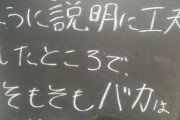 うに説明に工夫
したところで、
そもそもバカは